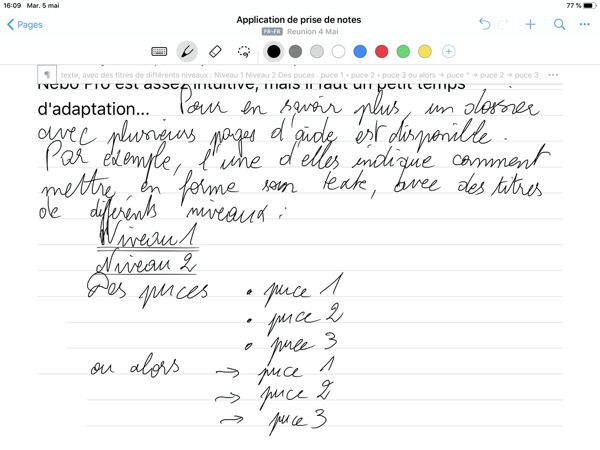 16:09 Mar. 5 mai
77 %
Pages
Application de prise de notes
FR-FR Reunion 4 Mai
texte, avec des titres de différents niveaux : Niveau 1 Niveau 2 Des puces . puce 1 • puce 2 • puce 3 ou alors → puce ^ → puce 2 → puce 3
Nebo Pro est assez intuitive, mais il faut un petit temps
d'adaptation... Pour en savoir plus, un dossier
avec plusieurs pages d'aide est disponible.
Par exemple, l'une d'elles indique comment
mettre en forme son texte, avec des titres
de différents niveaux :
Niveau 1
Niveau 2
Des puces • puce 1
• puce 2
• puce 3
ou alors → puce 1
→ puce 2
→ puce 3